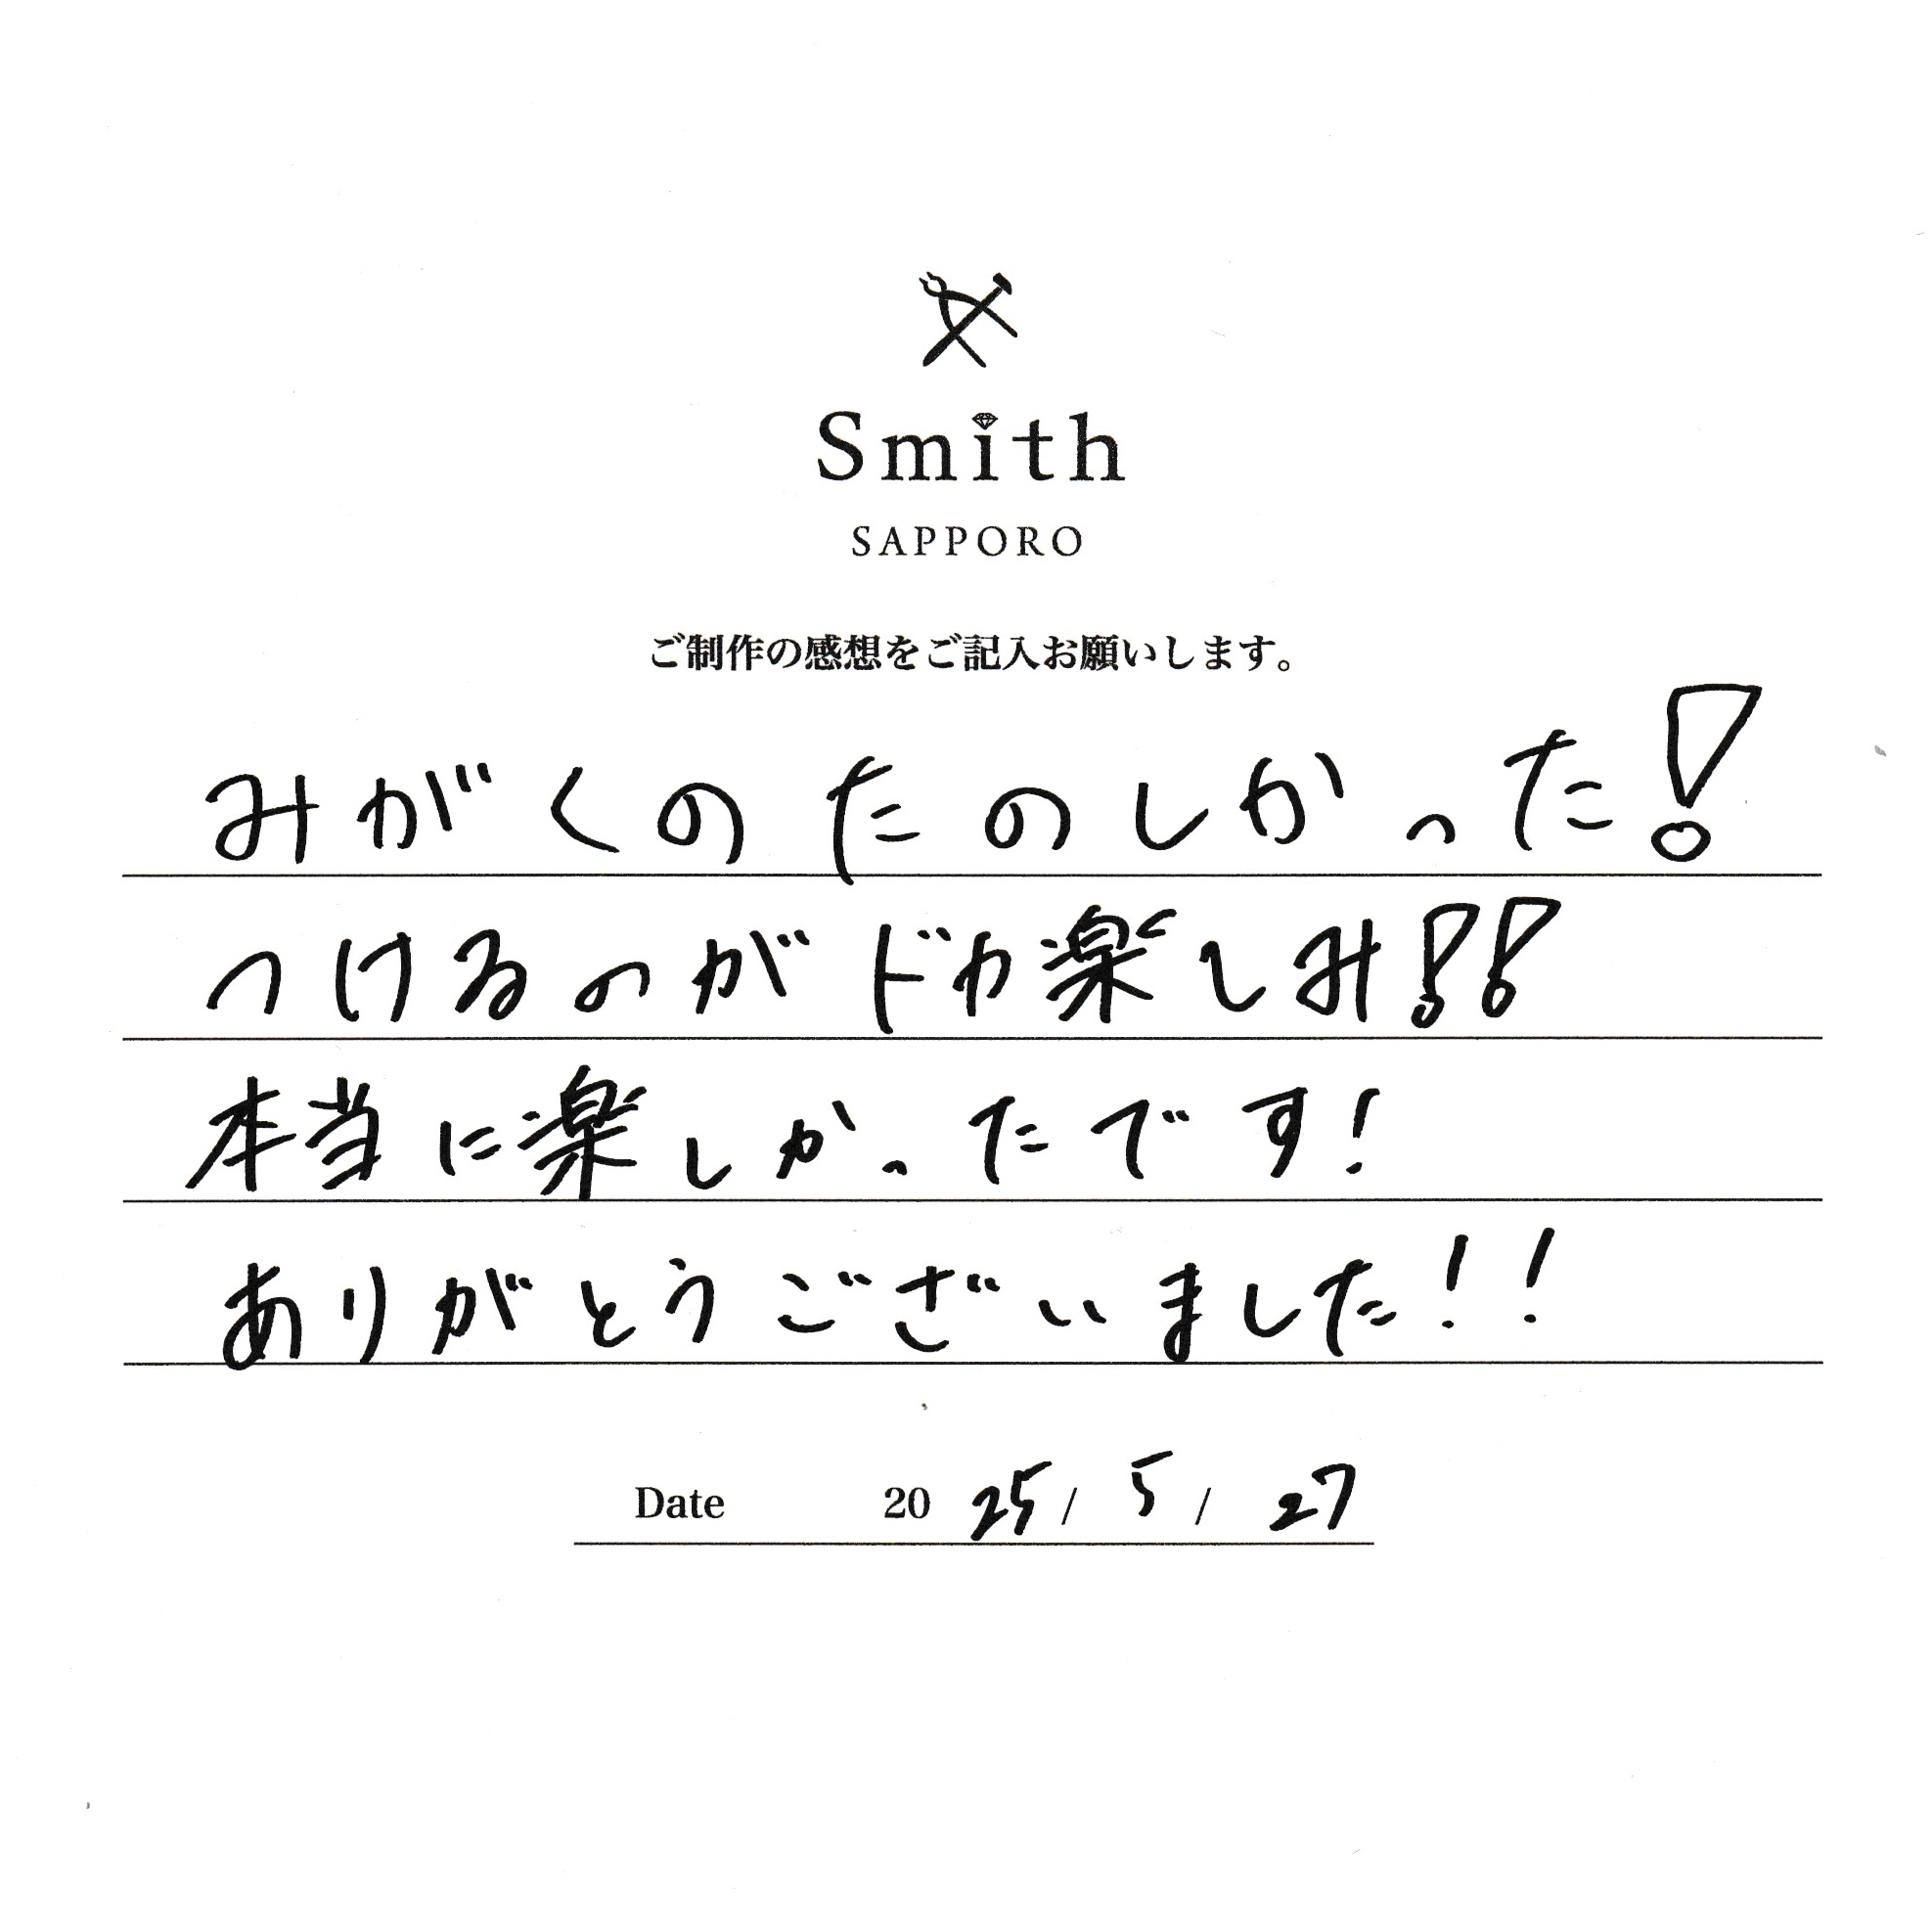 Smith
SAPPORO
ご制作の感想をご記入お願いします。
みがくのたのしかった!
つけるのがドカ楽しみ!!
本当に楽しかったです!
ありがとうございました!!
Date 20 25 / 5 / 27